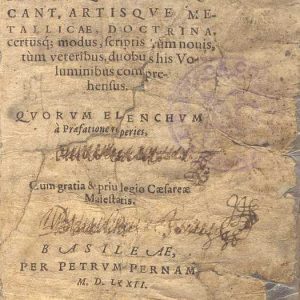 CANT, ARTISQVE ME-
TALLICAE, DOCTRINA,
certusq; modus, scriptis tum nouis,
tum veteribus, duobus his Vo-
luminibus compre-
hensus.
QVORVM ELENCHVM
à Præfatione reperies.
Cum gratia & priuilegio Cæsareæ
Maiestatis.
BASILEAE,
PER PETRVM PERNAM
M. D. LXXII.